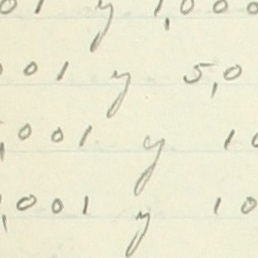 01 y 1,000
001 y 5,0
,001 y 10
,001 y 10